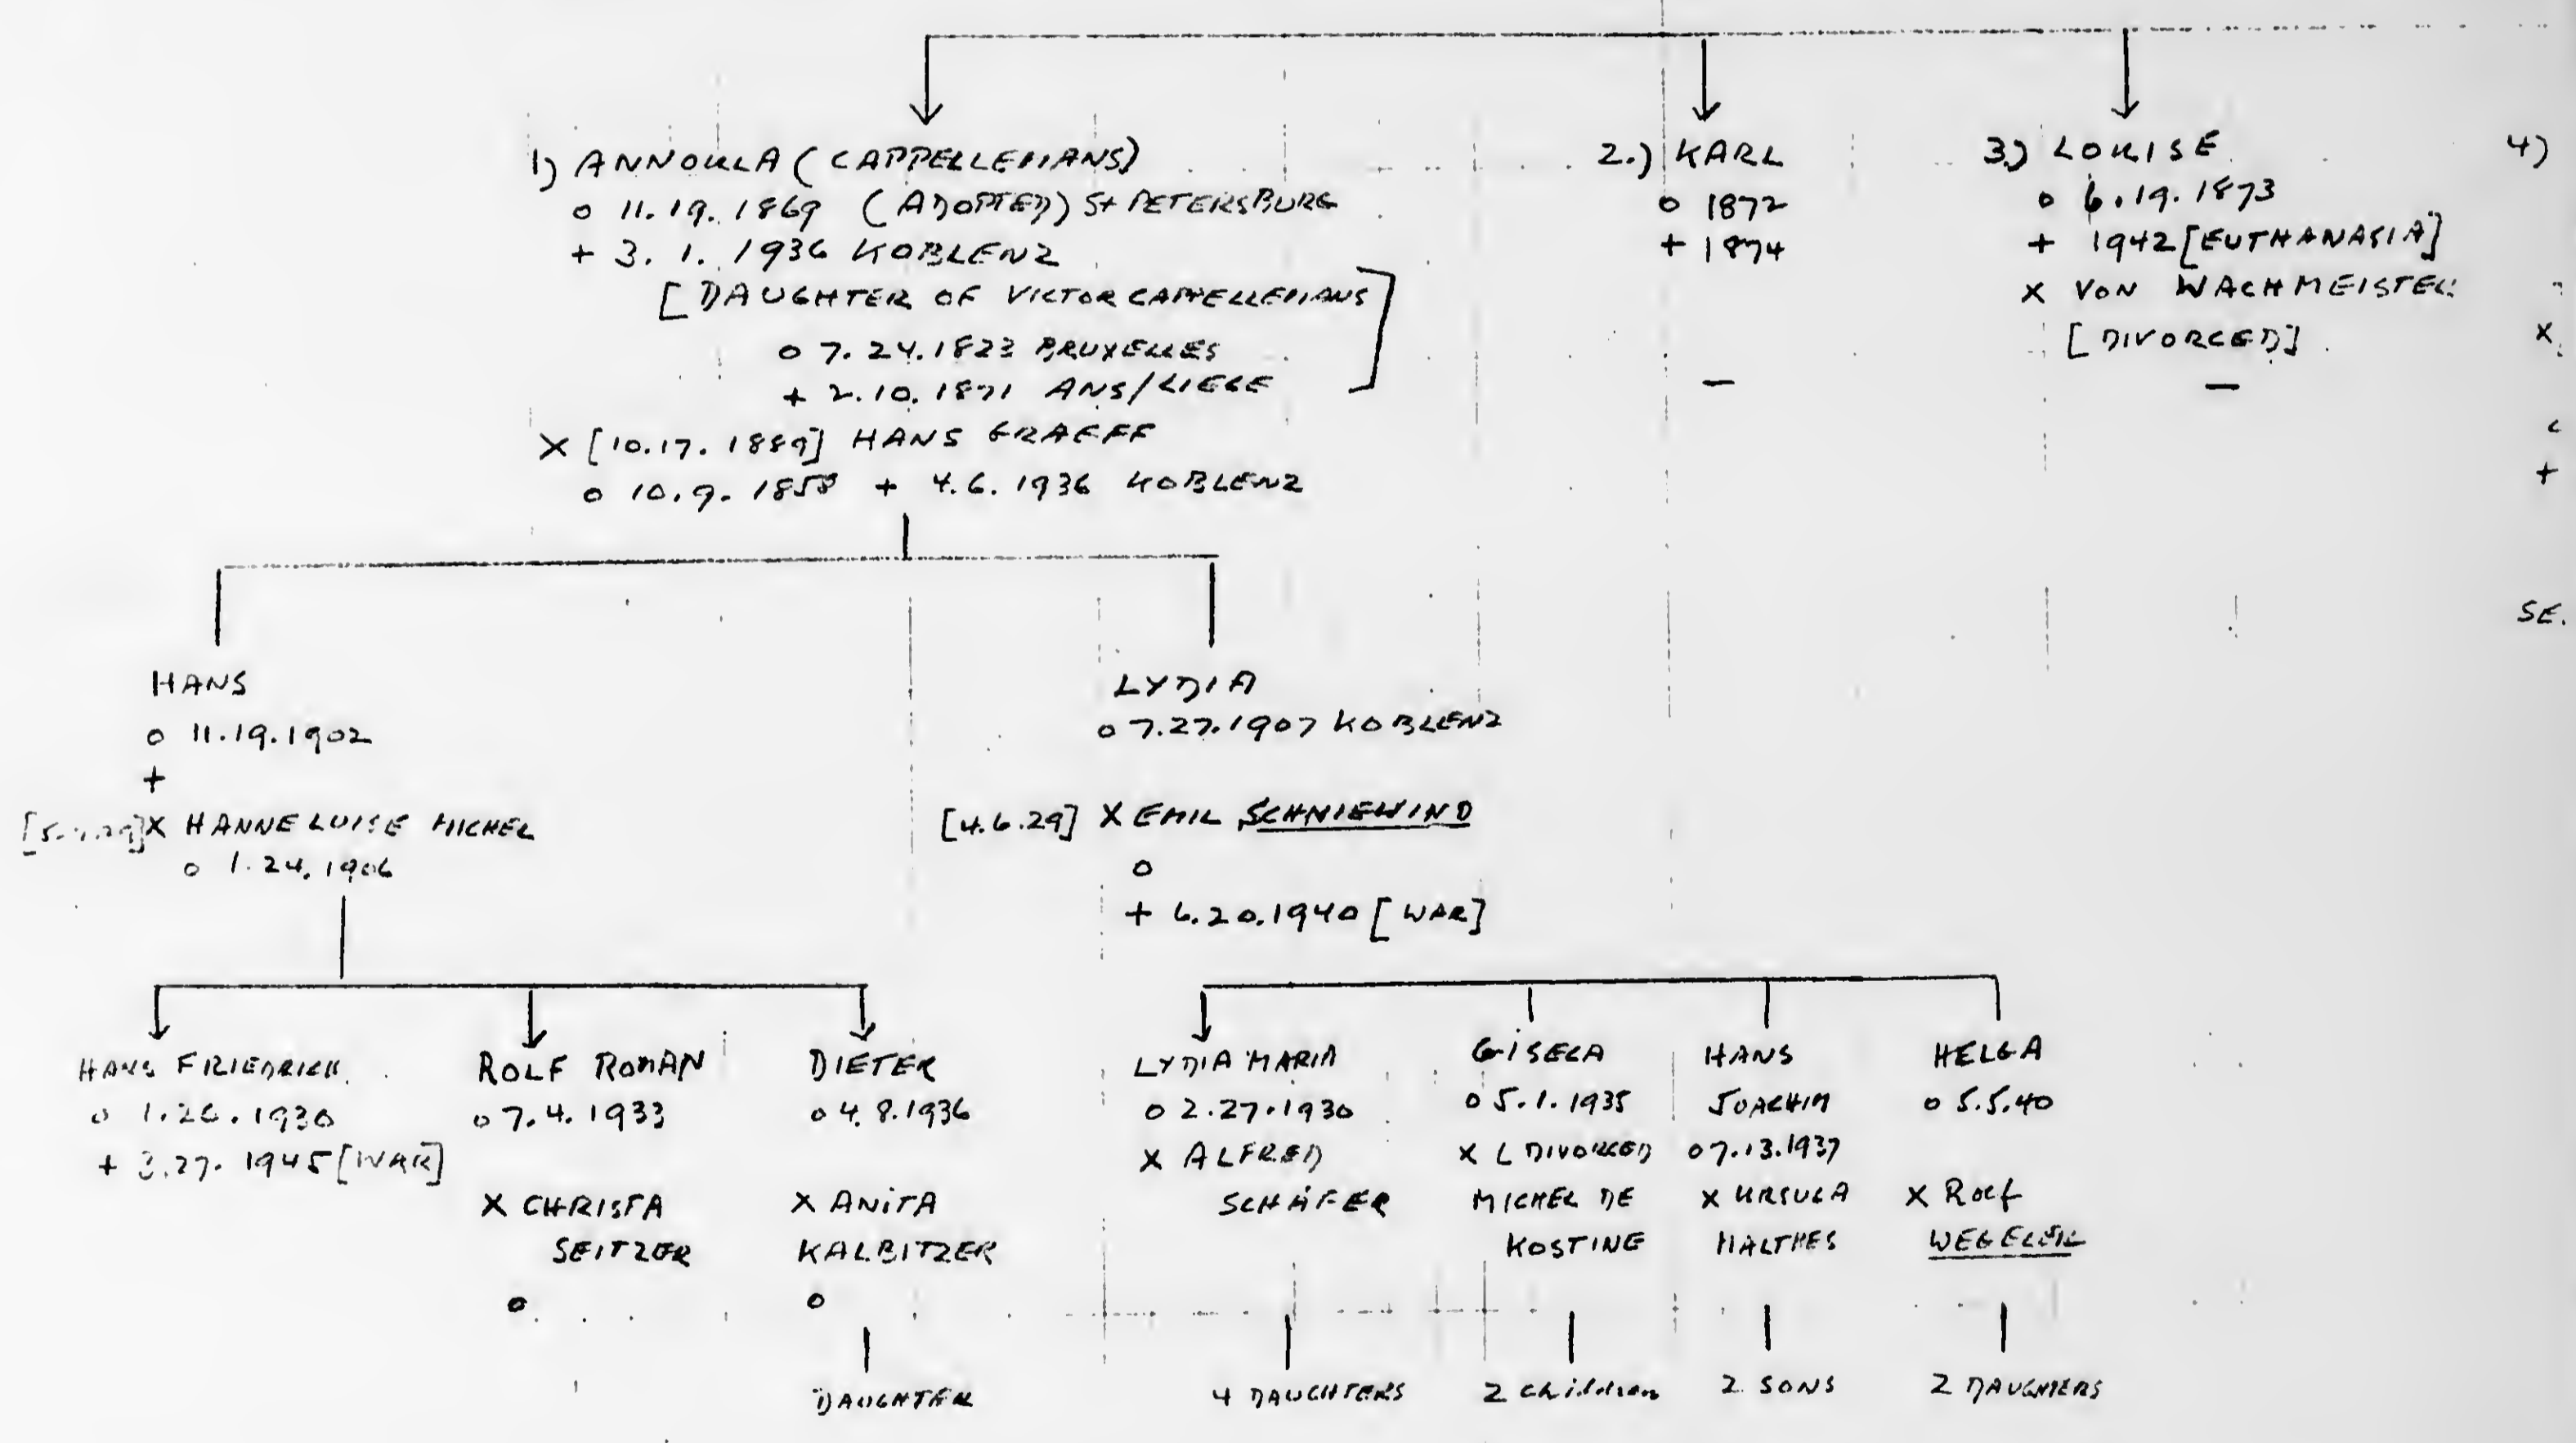 1) ANNOULA (CAPPELLEMANS)
o 11.19.1869 (ADOPTED) St PETERSBURG
+ 3.1.1936 KOBLENZ
[DAUGHTER OF VICTOR CAPPELLEMANS]
o 7.24.1823 BRUXELLES
+ 2.10.1871 ANS/LIEGE
X [10.17.1889] HANS GRAEFF
o 10.9.1858 + 4.6.1936 KOBLENZ
2.) KARL
o 1872
+ 1874
—
3.) LOUISE
o 6.19.1873
+ 1942 [EUTHANASIA]
X VON WACHMEISTER
[DIVORCED]
—
4)
X
+
SE.
HANS
o 11.19.1902
+
X HANNELUISE MICHEL
o 1.24.1906
LYDIA
o 7.27.1907 KOBLENZ
[4.6.29] X EMIL SCHNIEWIND
o
+ 6.20.1940 [WAR]
HANS FRIEDRICH
o 1.26.1930
+ 3.27.1945 [WAR]
ROLF ROMAN
o 7.4.1933
X CHRISTA
SEITZER
o
DIETER
o 4.8.1936
X ANITA
KALBITZER
o
DAUGHTER
LYDIA MARIA
o 2.27.1930
X ALFRED
SCHÄFER
4 DAUGHTERS
GISELA
o 5.1.1935
X [DIVORCED
MICHEL DE
KOSTINE
2 Children
HANS
JOACHIM
o 7.13.1937
X URSULA
MALTHES
2 SONS
HELGA
o 5.5.40
X Rolf
WEGELER
2 DAUGHTERS